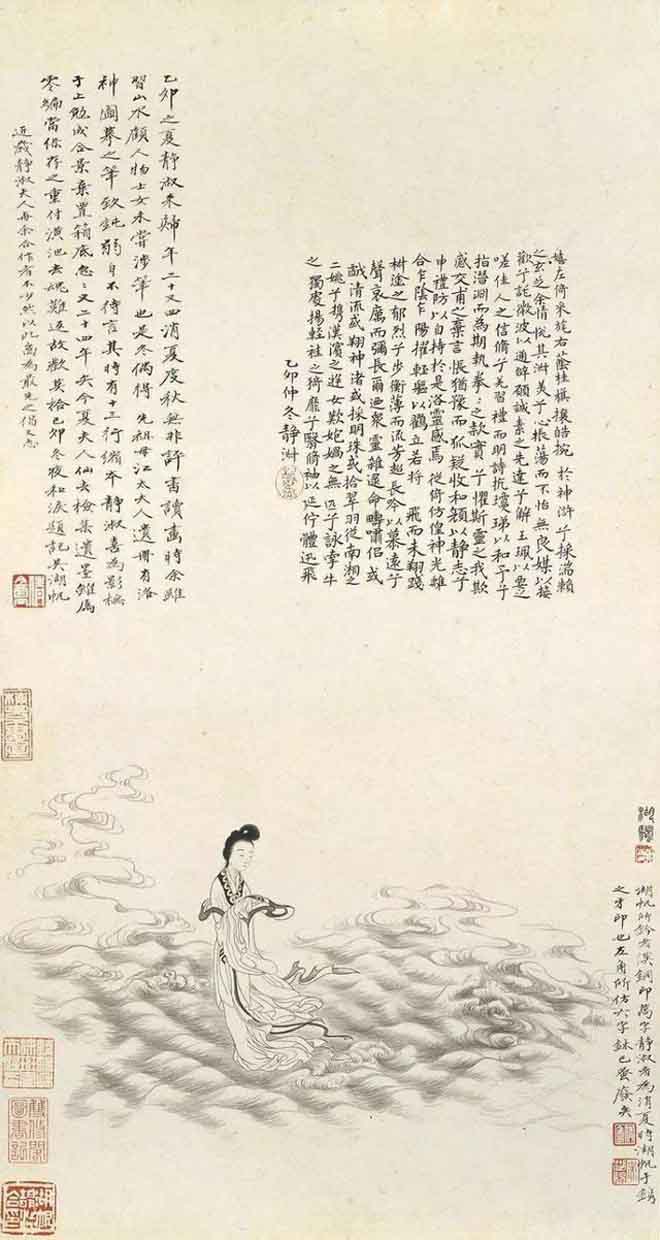 嬉左倚采旄右蔭桂旗攘皓捥 於神滸兮採湍瀨
之玄芝余情悅其淑美兮心振蕩而不怡無良媒以接
歡兮託微波以通辭願誠素之先達兮解玉珮以要之
嗟佳人之信脩兮羌習禮而明詩抗瓊珶以和予兮
指潛淵而為期執拳〻之款實兮懼斯靈之我欺
感交甫之棄言悵猶豫而狐疑收和顏以静志兮
申禮防以自持於是洛靈感焉徙倚仿偟神光離
合乍陰乍陽擢輕軀以鶴立若將 飛而未翔踐
椒塗之郁烈兮步衡薄而流芳超長吟以慕遠兮
聲哀厲而彌長爾迺衆靈雜遝命疇嘯侶或
戲清流或翔神渚或採明珠或拾翠羽從南湘之
二姚兮攜漢濱之遊女歎炮媧之無匹兮詠牽牛
之獨處揚輕袿之猗靡兮翳脩袖以延佇體迅飛
乙卯仲冬静淑
乙卯之夏静淑来歸年二十又四消夏度秋無非評書讀畫時余雖
習山水顧人物士女未嘗涉筆也是冬偶得 先祖母江太夫人遺冊有洛
神圖摹之筆致鈍弱自不待言其時有十三行縮本静淑喜為影橅
于上勉成合景棄置箱底忽〻又二十四年矣今夏夫人仙去檢集遺墨雖屬
零縑當保存之重付潢池去魂難返故歡莫拾己卯冬夜和淚題記吴湖帆
近歲静淑夫人與余合作者不少然以此為最先之倡又志
湖帆所鈐者漢銅印萬字静淑者為消夏時湖帆手鐫
之牙印也左角所仿六字鉨已蛀廢矣